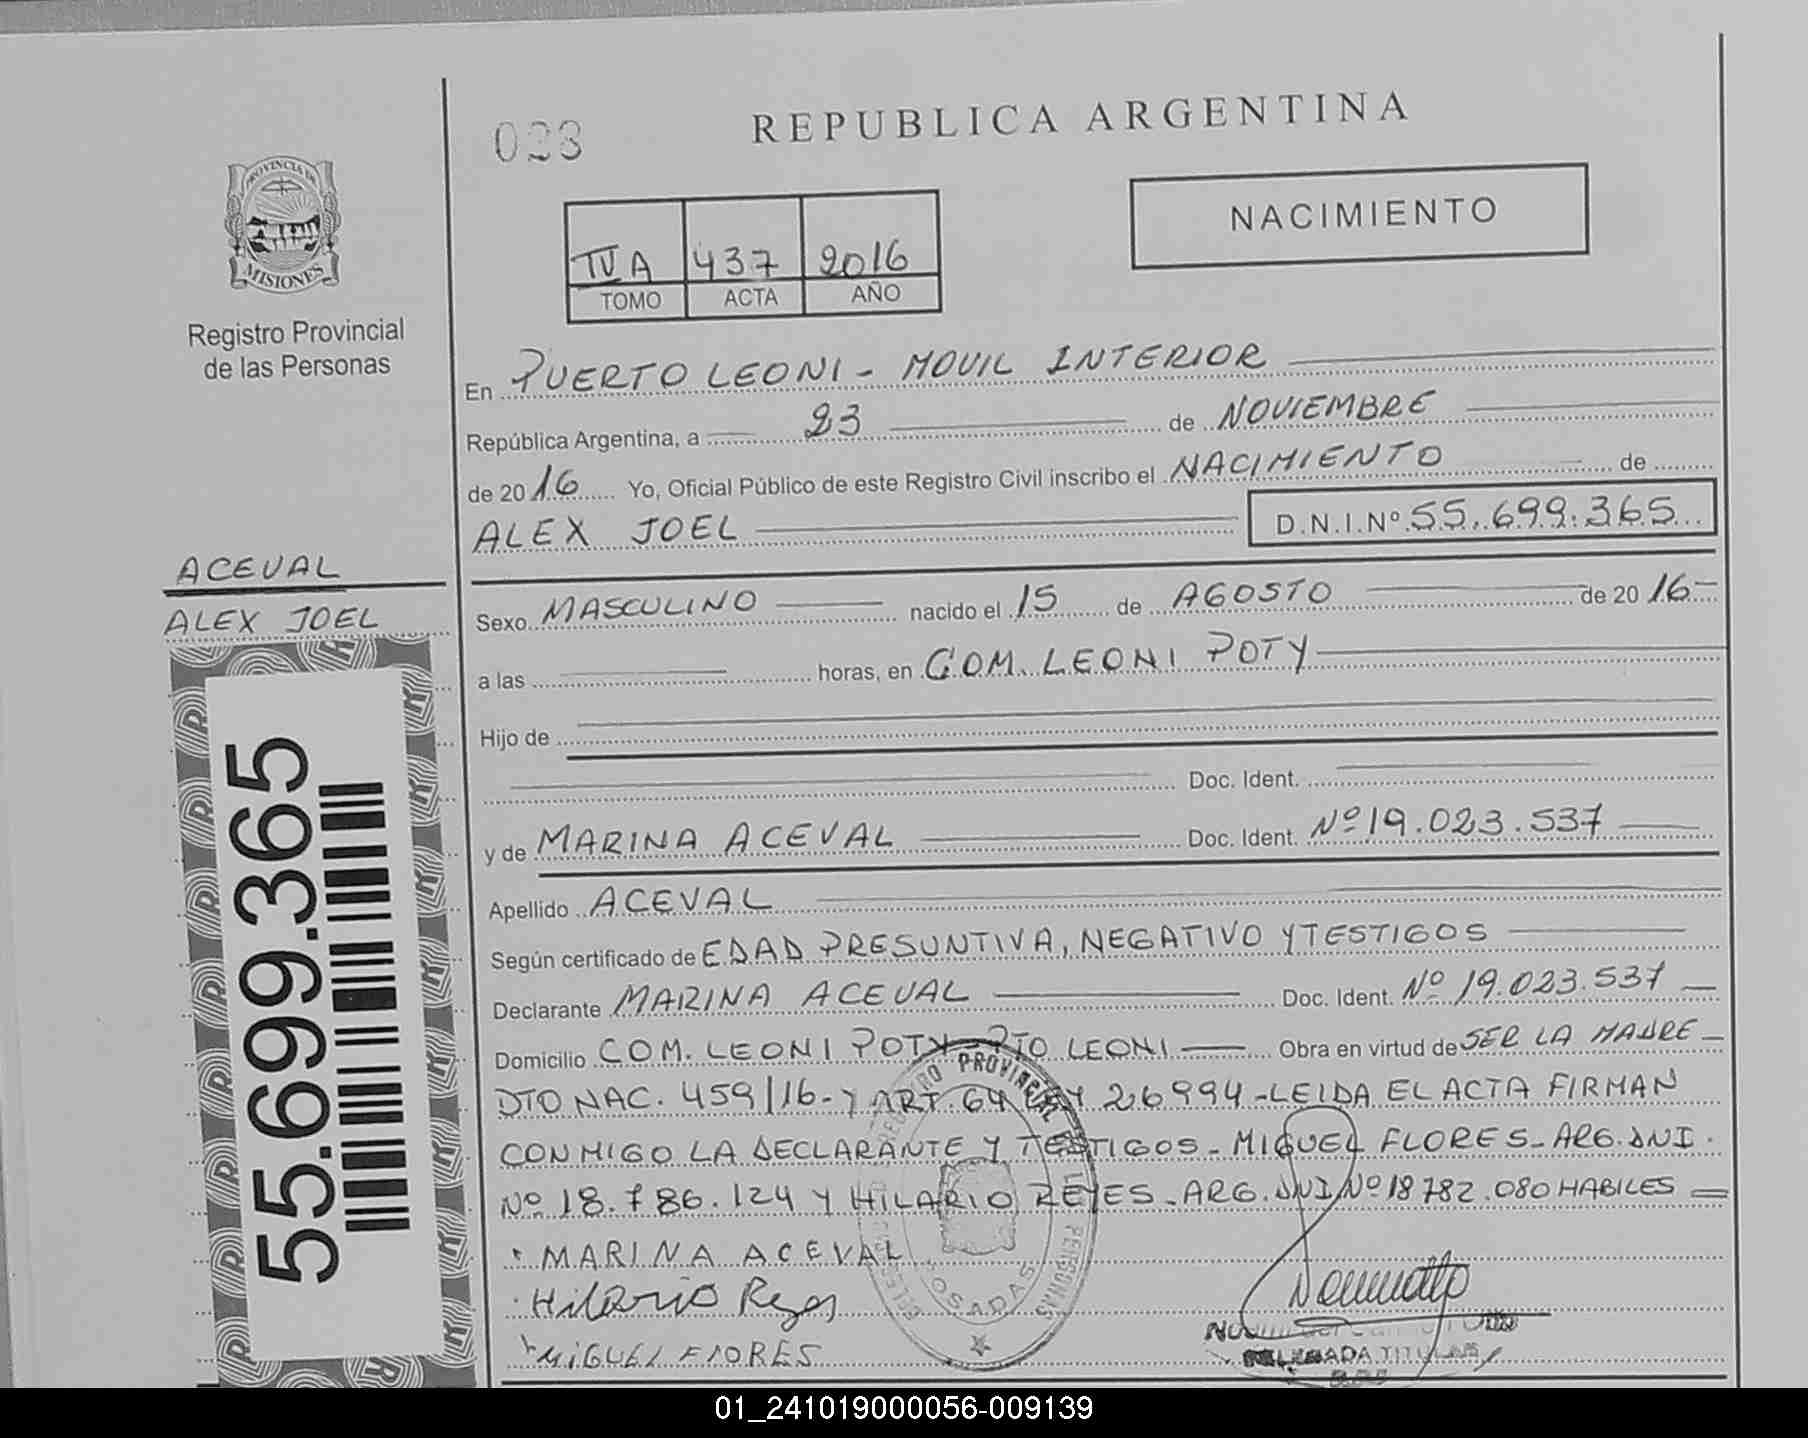 023
REPUBLICA ARGENTINA
PROVINCIA DE
MISIONES
Registro Provincial
de las Personas
NACIMIENTO
IV A 437 2016
TOMO ACTA AÑO
En PUERTO LEONI - MOVIL INTERIOR
República Argentina, a 23 de NOVIEMBRE
de 2016 Yo, Oficial Público de este Registro Civil inscribo el NACIMIENTO de
ALEX JOEL D.N.I.Nº 55.699.365
ACEVAL
ALEX JOEL
55.699.365
Sexo MASCULINO nacido el 15 de AGOSTO de 2016-
a las horas, en COM. LEONI POTY
Hijo de
Doc. Ident.
y de MARINA ACEVAL Doc. Ident. Nº 19.023.537
Apellido ACEVAL
Según certificado de EDAD PRESUNTIVA, NEGATIVO Y TESTIGOS
Declarante MARINA ACEVAL Doc. Ident. Nº 19.023.537
Domicilio COM. LEONI POTY - PTO LEONI Obra en virtud de SER LA MADRE -
DTO NAC. 459/16 - Y ART. 64 LEY 26994 - LEIDA EL ACTA FIRMAN
CONMIGO LA DECLARANTE Y TESTIGOS - MIGUEL FLORES - ARG. DNI.
Nº 18.786.124 Y HILARIO REYES - ARG. DNI Nº 18782.080 HABILES
MARINA ACEVAL
Hilario Reyes
MIGUEL FLORES
PROVINCIAL
PERSONAS
POSADAS
DELEGADA TITULAR
01_241019000056-009139